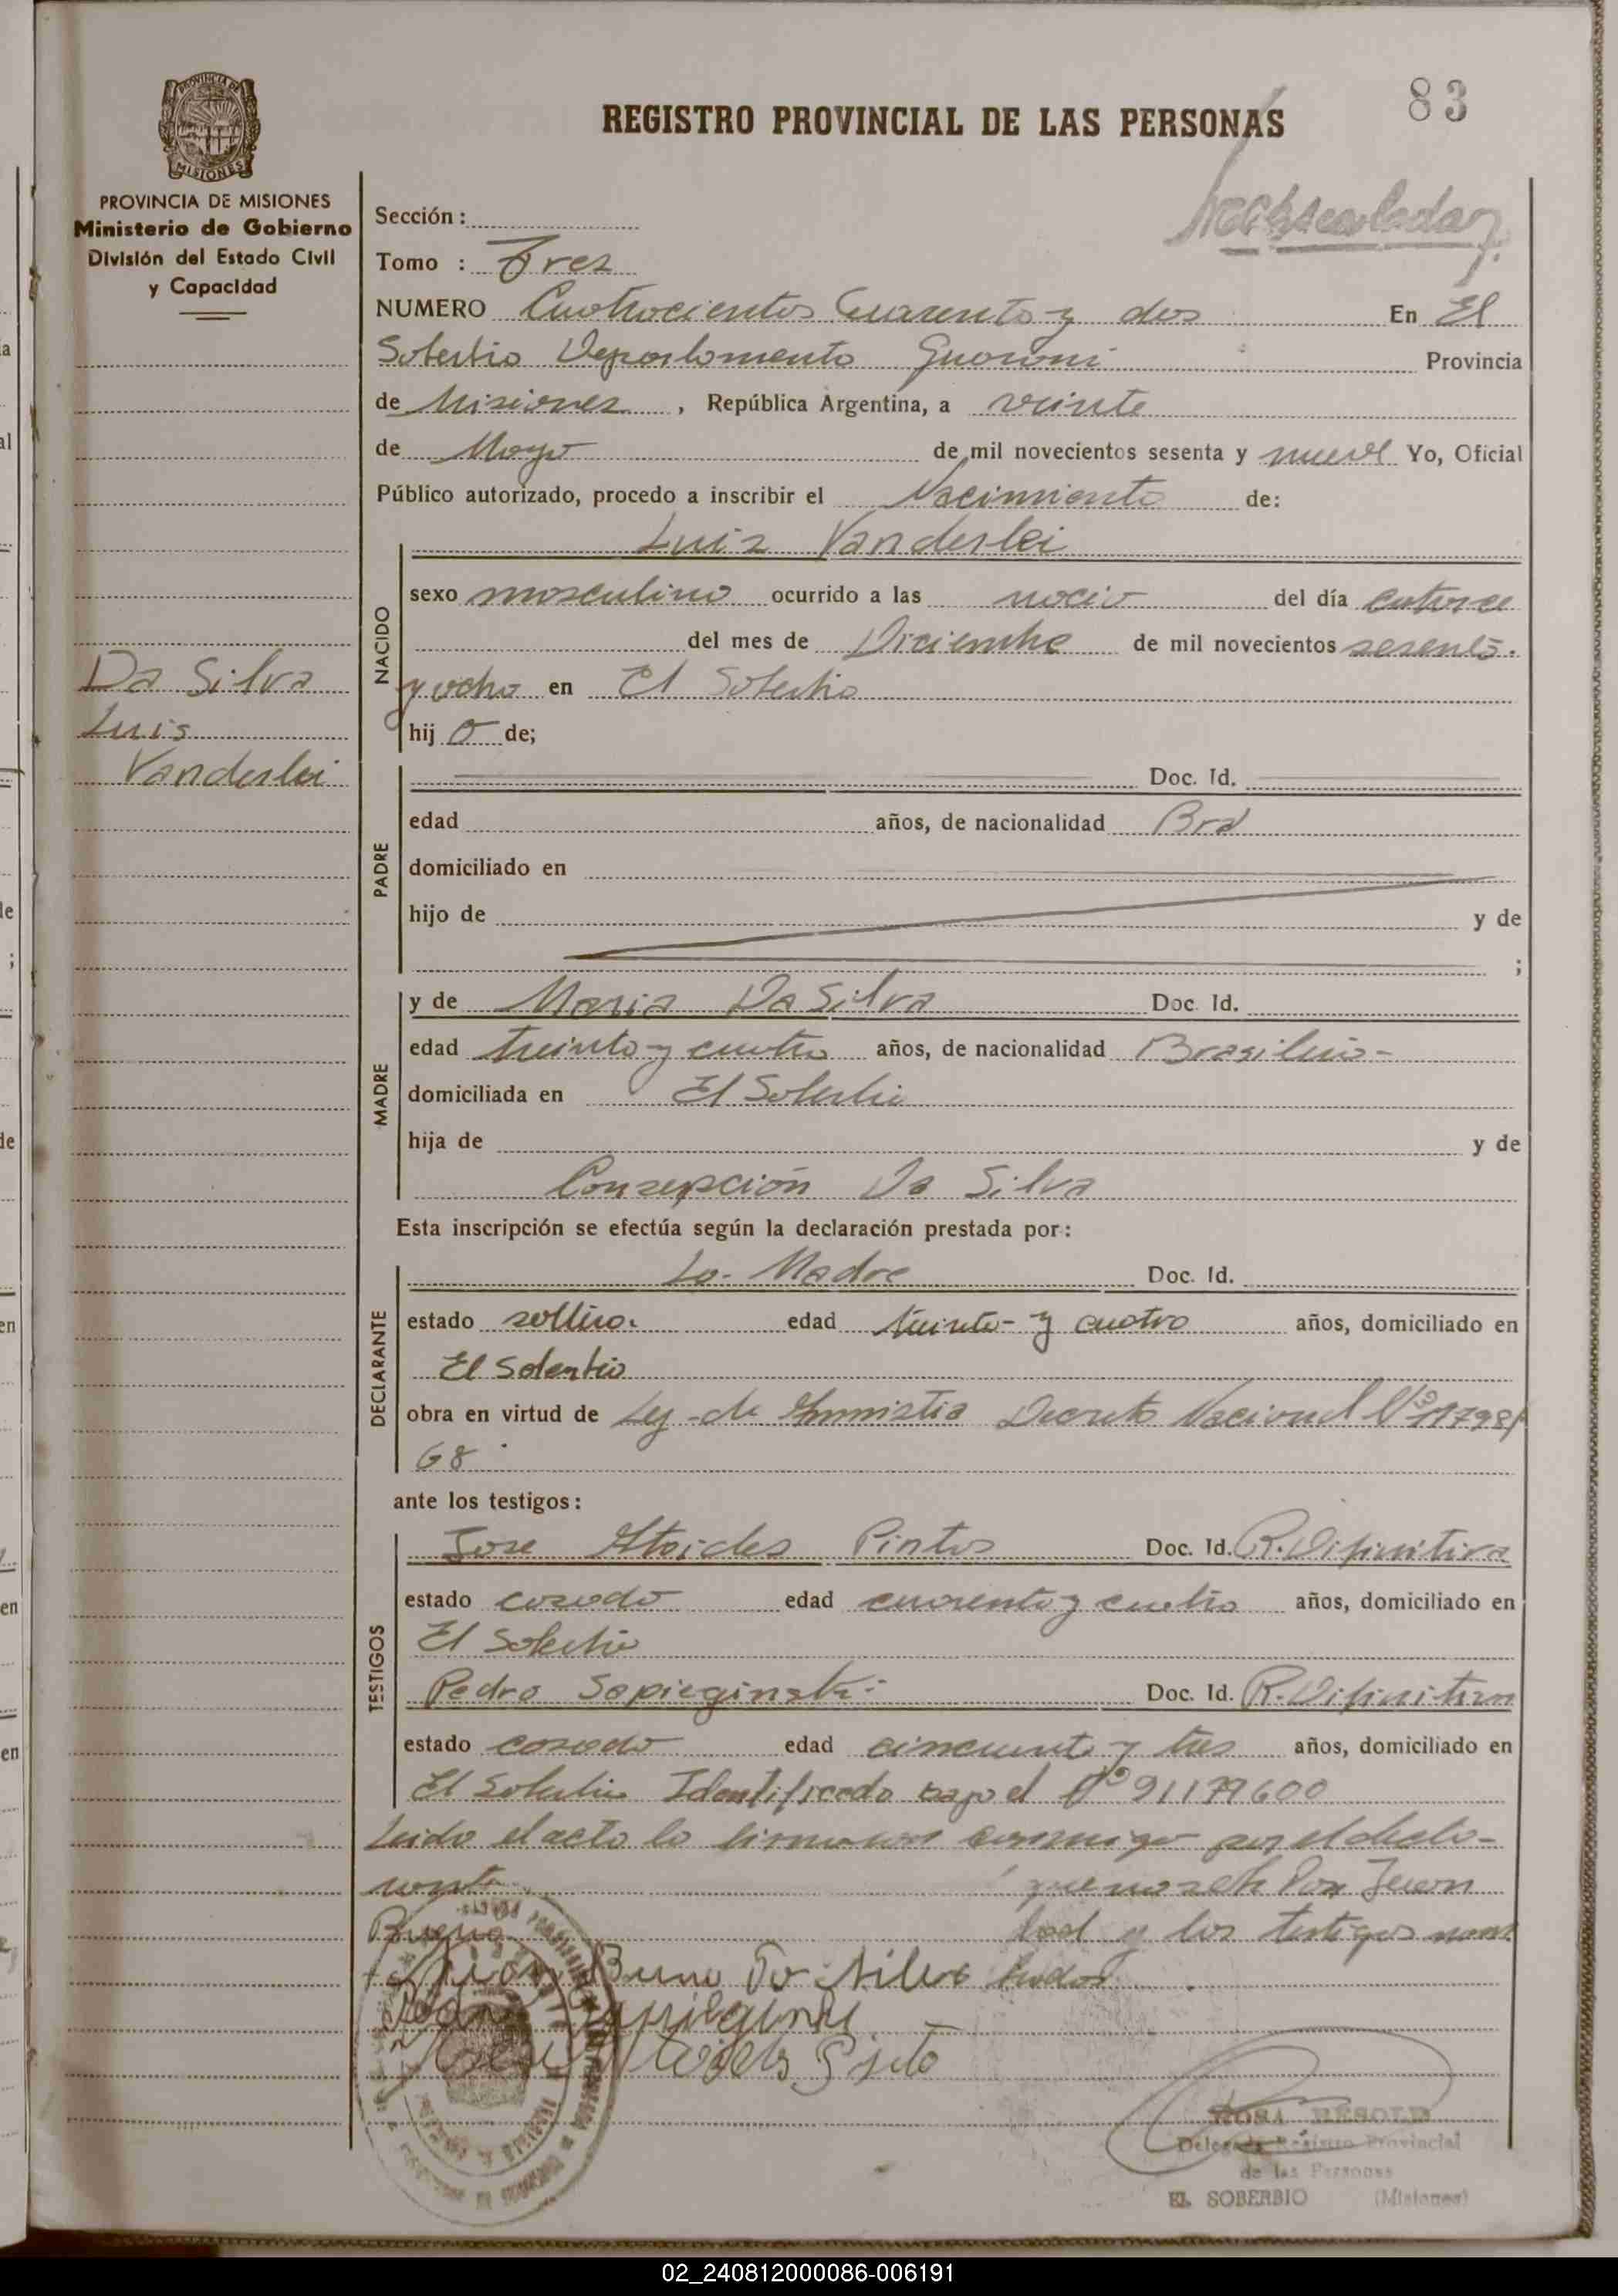 83
REGISTRO PROVINCIAL DE LAS PERSONAS
PROVINCIA DE MISIONES
MISIONES
PROVINCIA DE MISIONES
Ministerio de Gobierno
División del Estado Civil
y Capacidad
Sección:
Tomo : Tres
NUMERO Cuatrocientos Cuarenta y dos En El
Soberbio Departamento Guarani Provincia
de Misiones, República Argentina, a veinte
de Mayo de mil novecientos sesenta y nueve Yo, Oficial
Público autorizado, procedo a inscribir el Nacimiento de:
Luis Vanderlei
NACIDO
sexo masculino ocurrido a las del día catorce
del mes de Diciembre de mil novecientos sesenta
y ocho en El Soberbio
hij o de;
Da Silva
Luis
Vanderlei
PADRE
Doc. Id.
edad años, de nacionalidad Bra
domiciliado en
hijo de y de
;
MADRE
y de Maria Da Silva Doc. Id.
edad treinta y cuatro años, de nacionalidad Brasilera-
domiciliada en El Soberbio
hija de y de
Consepción Da Silva
Esta inscripción se efectúa según la declaración prestada por:
DECLARANTE
La Madre Doc. Id.
estado soltera. edad treinta y cuatro años, domiciliado en
El Soberbio
obra en virtud de Ley de Amnistia Decreto Nacional Nº 11798/
68
ante los testigos:
TESTIGOS
Jose Pintos Doc. Id. R. Difinitiva
estado casado edad cuarenta y cuatro años, domiciliado en
El Soberbio
Pedro Sapieginski Doc. Id. R. Difinitiva
estado casado edad cincuenta y tres años, domiciliado en
El Soberbio Identificado bajo el Nº 91179600
Leido el acta la firmaron conmigo por el decla-
rante que no sabe Don Juan
Bueno y los testigos nom
Bueno Da Silva brados
Pedro
ROSA RESOLD
Delegada Registro Provincial
de las Personas
EL SOBERBIO (Misiones)
02_240812000086-006191